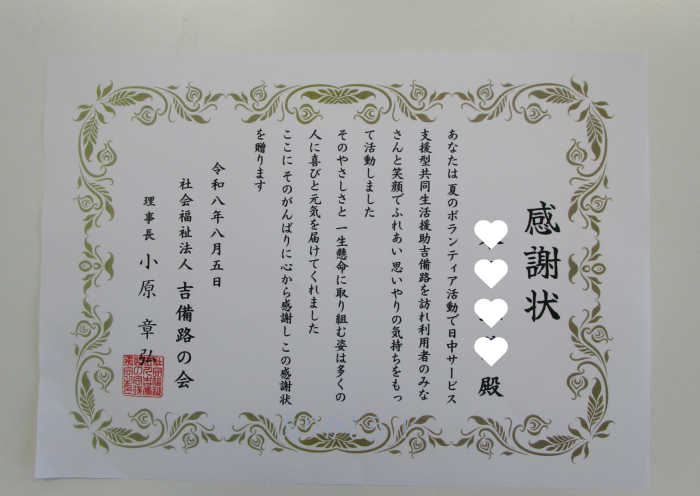 感謝状
殿
あなたは 夏のボランティア活動で日中サービス
支援型共同生活援助吉備路を訪れ利用者のみな
さんと笑顔でふれあい 思いやりの気持ちをもっ
て活動しました
そのやさしさと 一生懸命に取り組む姿は多くの
人に喜びと元気を届けてくれました
ここに そのがんばりに心から感謝し この感謝状
を贈ります
令和八年八月五日
社会福祉法人 吉備路の会
理事長 小原 章弘